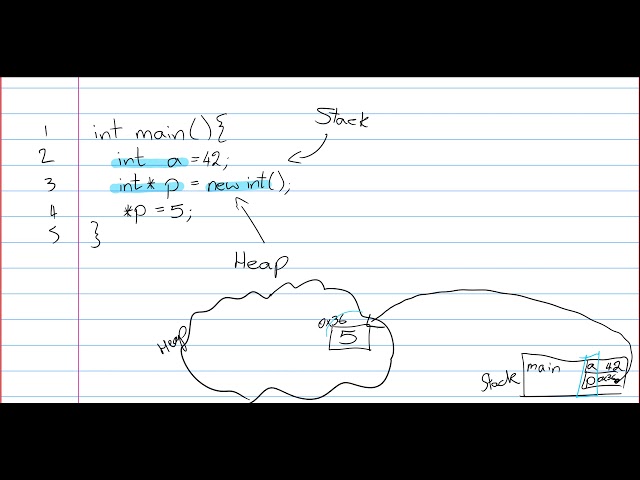 Stack
1 int main(){
2 int a = 42;
3 int* p = new int();
4 *p = 5;
5 }
Heap
Heap
0x36
5
Stack
main
a 42
p 0x36